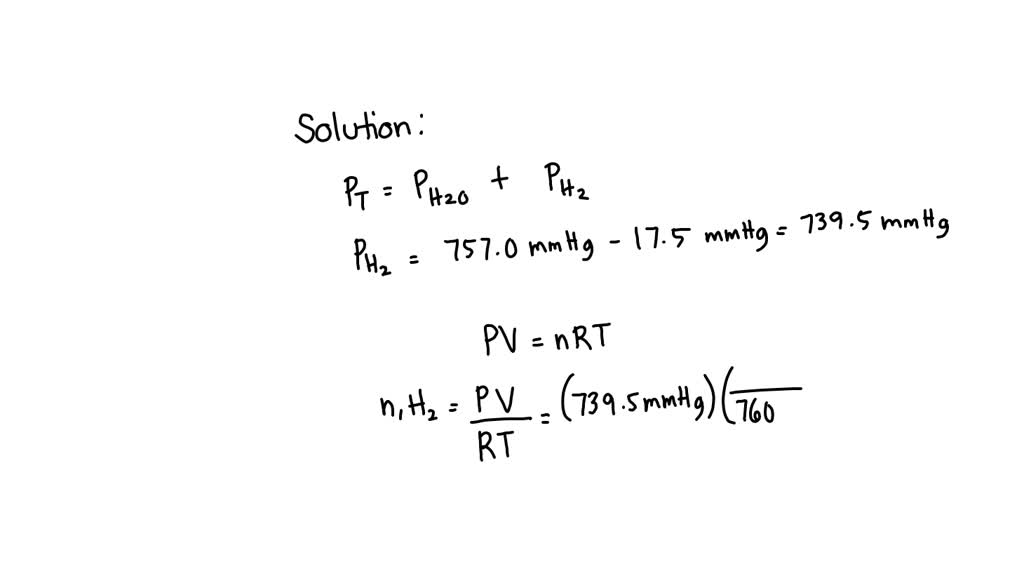 Solution:
P_T = P_H2O + P_H2
P_H2 = 757.0 mmHg - 17.5 mmHg = 739.5 mmHg
PV = nRT
n, H2 = PV/RT = (739.5 mmHg)( /760